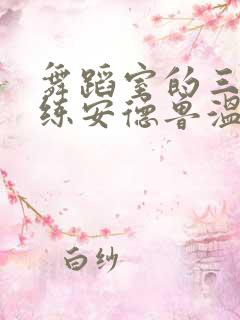 舞蹈室的三
练安德鲁温
白纱